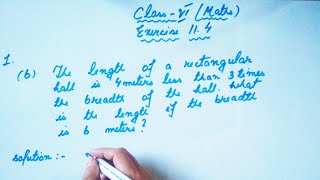 Class - VI (Maths)
Exercise 11.4
1.
(b) The length of a rectangular
hall is 4 meters less than 3 times
the breadth of the hall. What
is the length if the breadth
is 6 meters?
solution:-